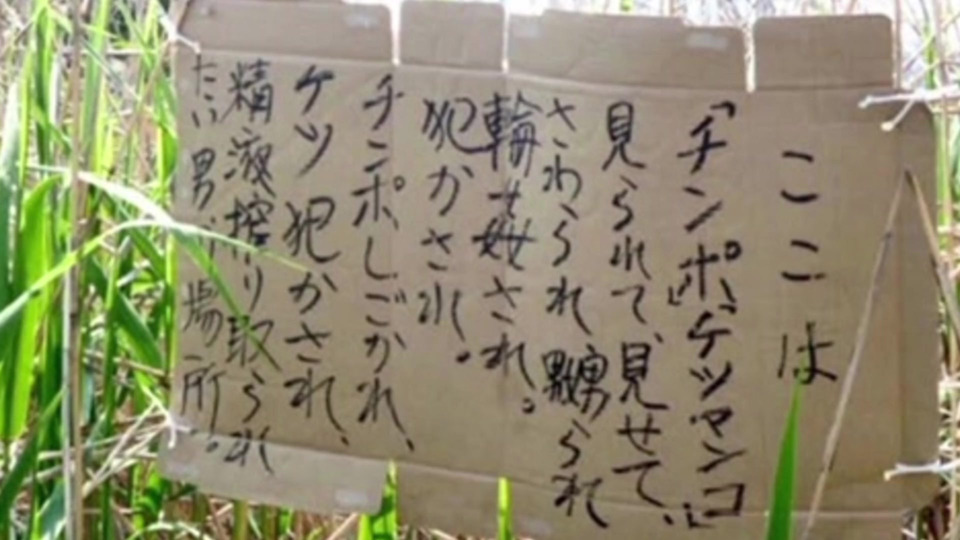 ここは
「チンポ」、「ケツマンコ」
見られて、見せて、
さわられ、嬲られ
輪姦され。
犯かされ。
チンポしごかれ、
ケツ犯かされ、
精液搾り取られ
たい男が行く場所。